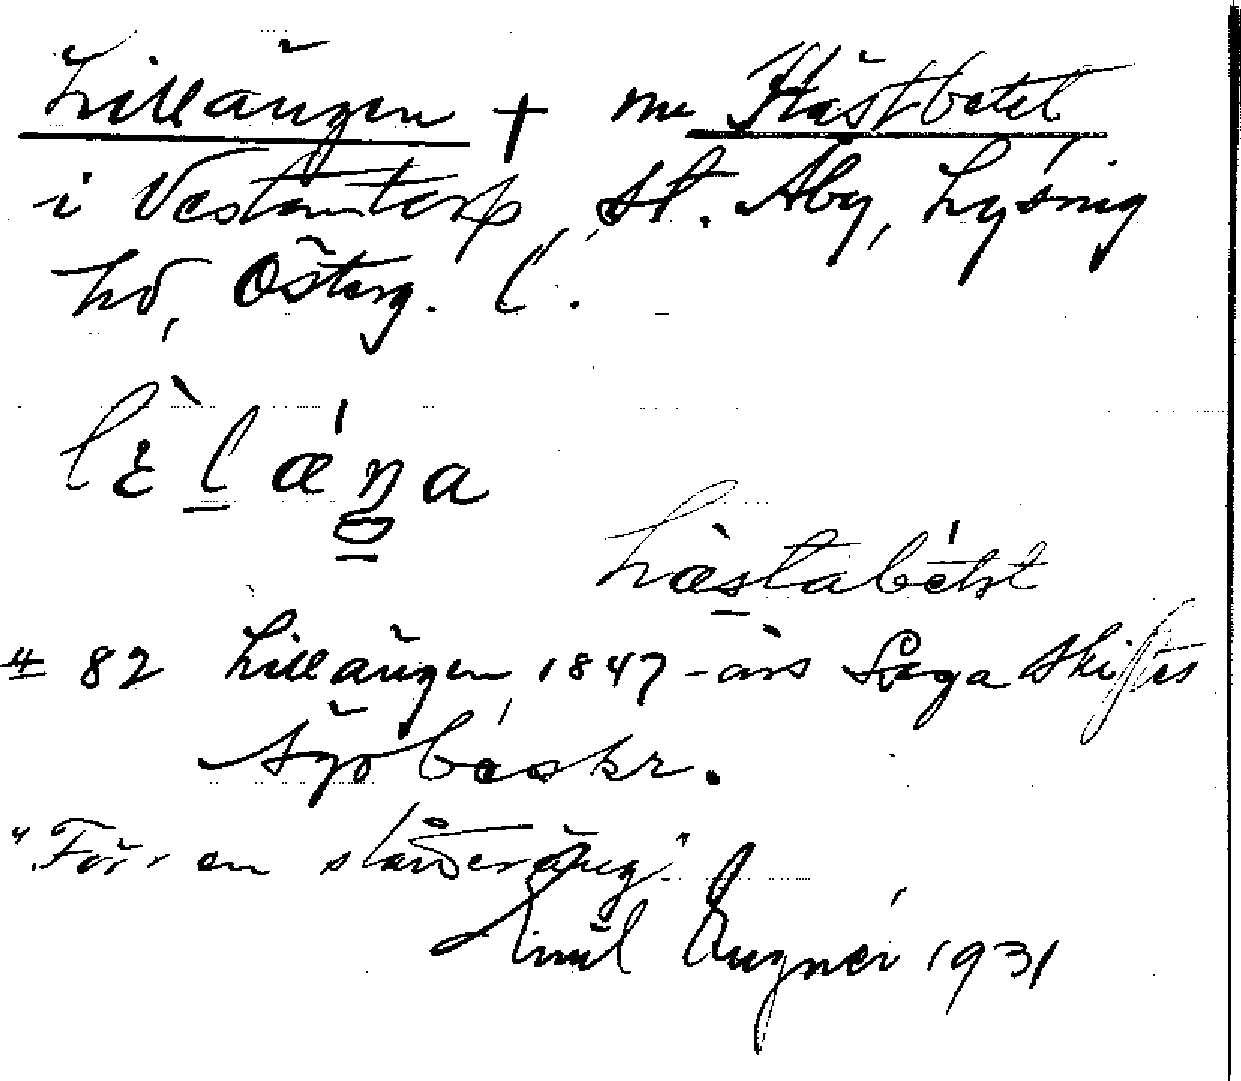 Lillängen † nu Hästbetet
i Västantorp, St. Åby, Lysing
hd, Österg. l.
lɛ̀lǽŋa
hæ̀stabétət
# 82 Lillängen, 1847-års Laga skiftes
ägobeskr.
"Förr en slåtteräng"
Emil Engnér 1931